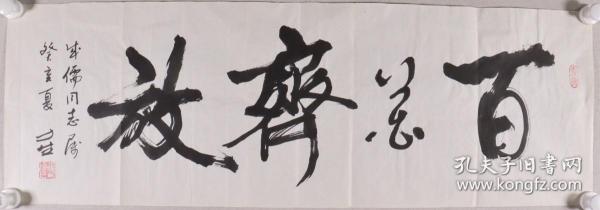 百花齊放
成儒同志属
癸亥夏
孔夫子旧书网
www.kongfz.com